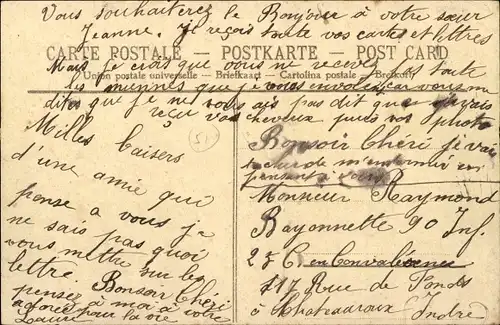 Vous souhaiterez le Bonjour à votre sœur
Jeanne. je reçois toute vos cartes et lettres
CARTE POSTALE - POSTKARTE - POST CARD
Mais je crois que vous ne recevez pas toute
Union postale universelle - Briefkaart - Cartolina postale - Brefkort
les miennes que je vous envoie car vous me
dites que je ne vous ais pas dit que j'avais
reçu vos cheveux puis vos photo
Milles Baisers
d'une amie que
pense à vous je
ne sais pas quoi
vous mettre sur les
lettre. Bonsoir Chéri
pensée à moi à votre
adorée pour la vie
Laure
51
Bonsoir Chéri je vais
tacher de m'endormir en
pensant à vous
Monsieur Raymond
Bayonnette 90 Inf.
25 C en Convalécence
117 Rue de Fonds
à Chateauroux Indre